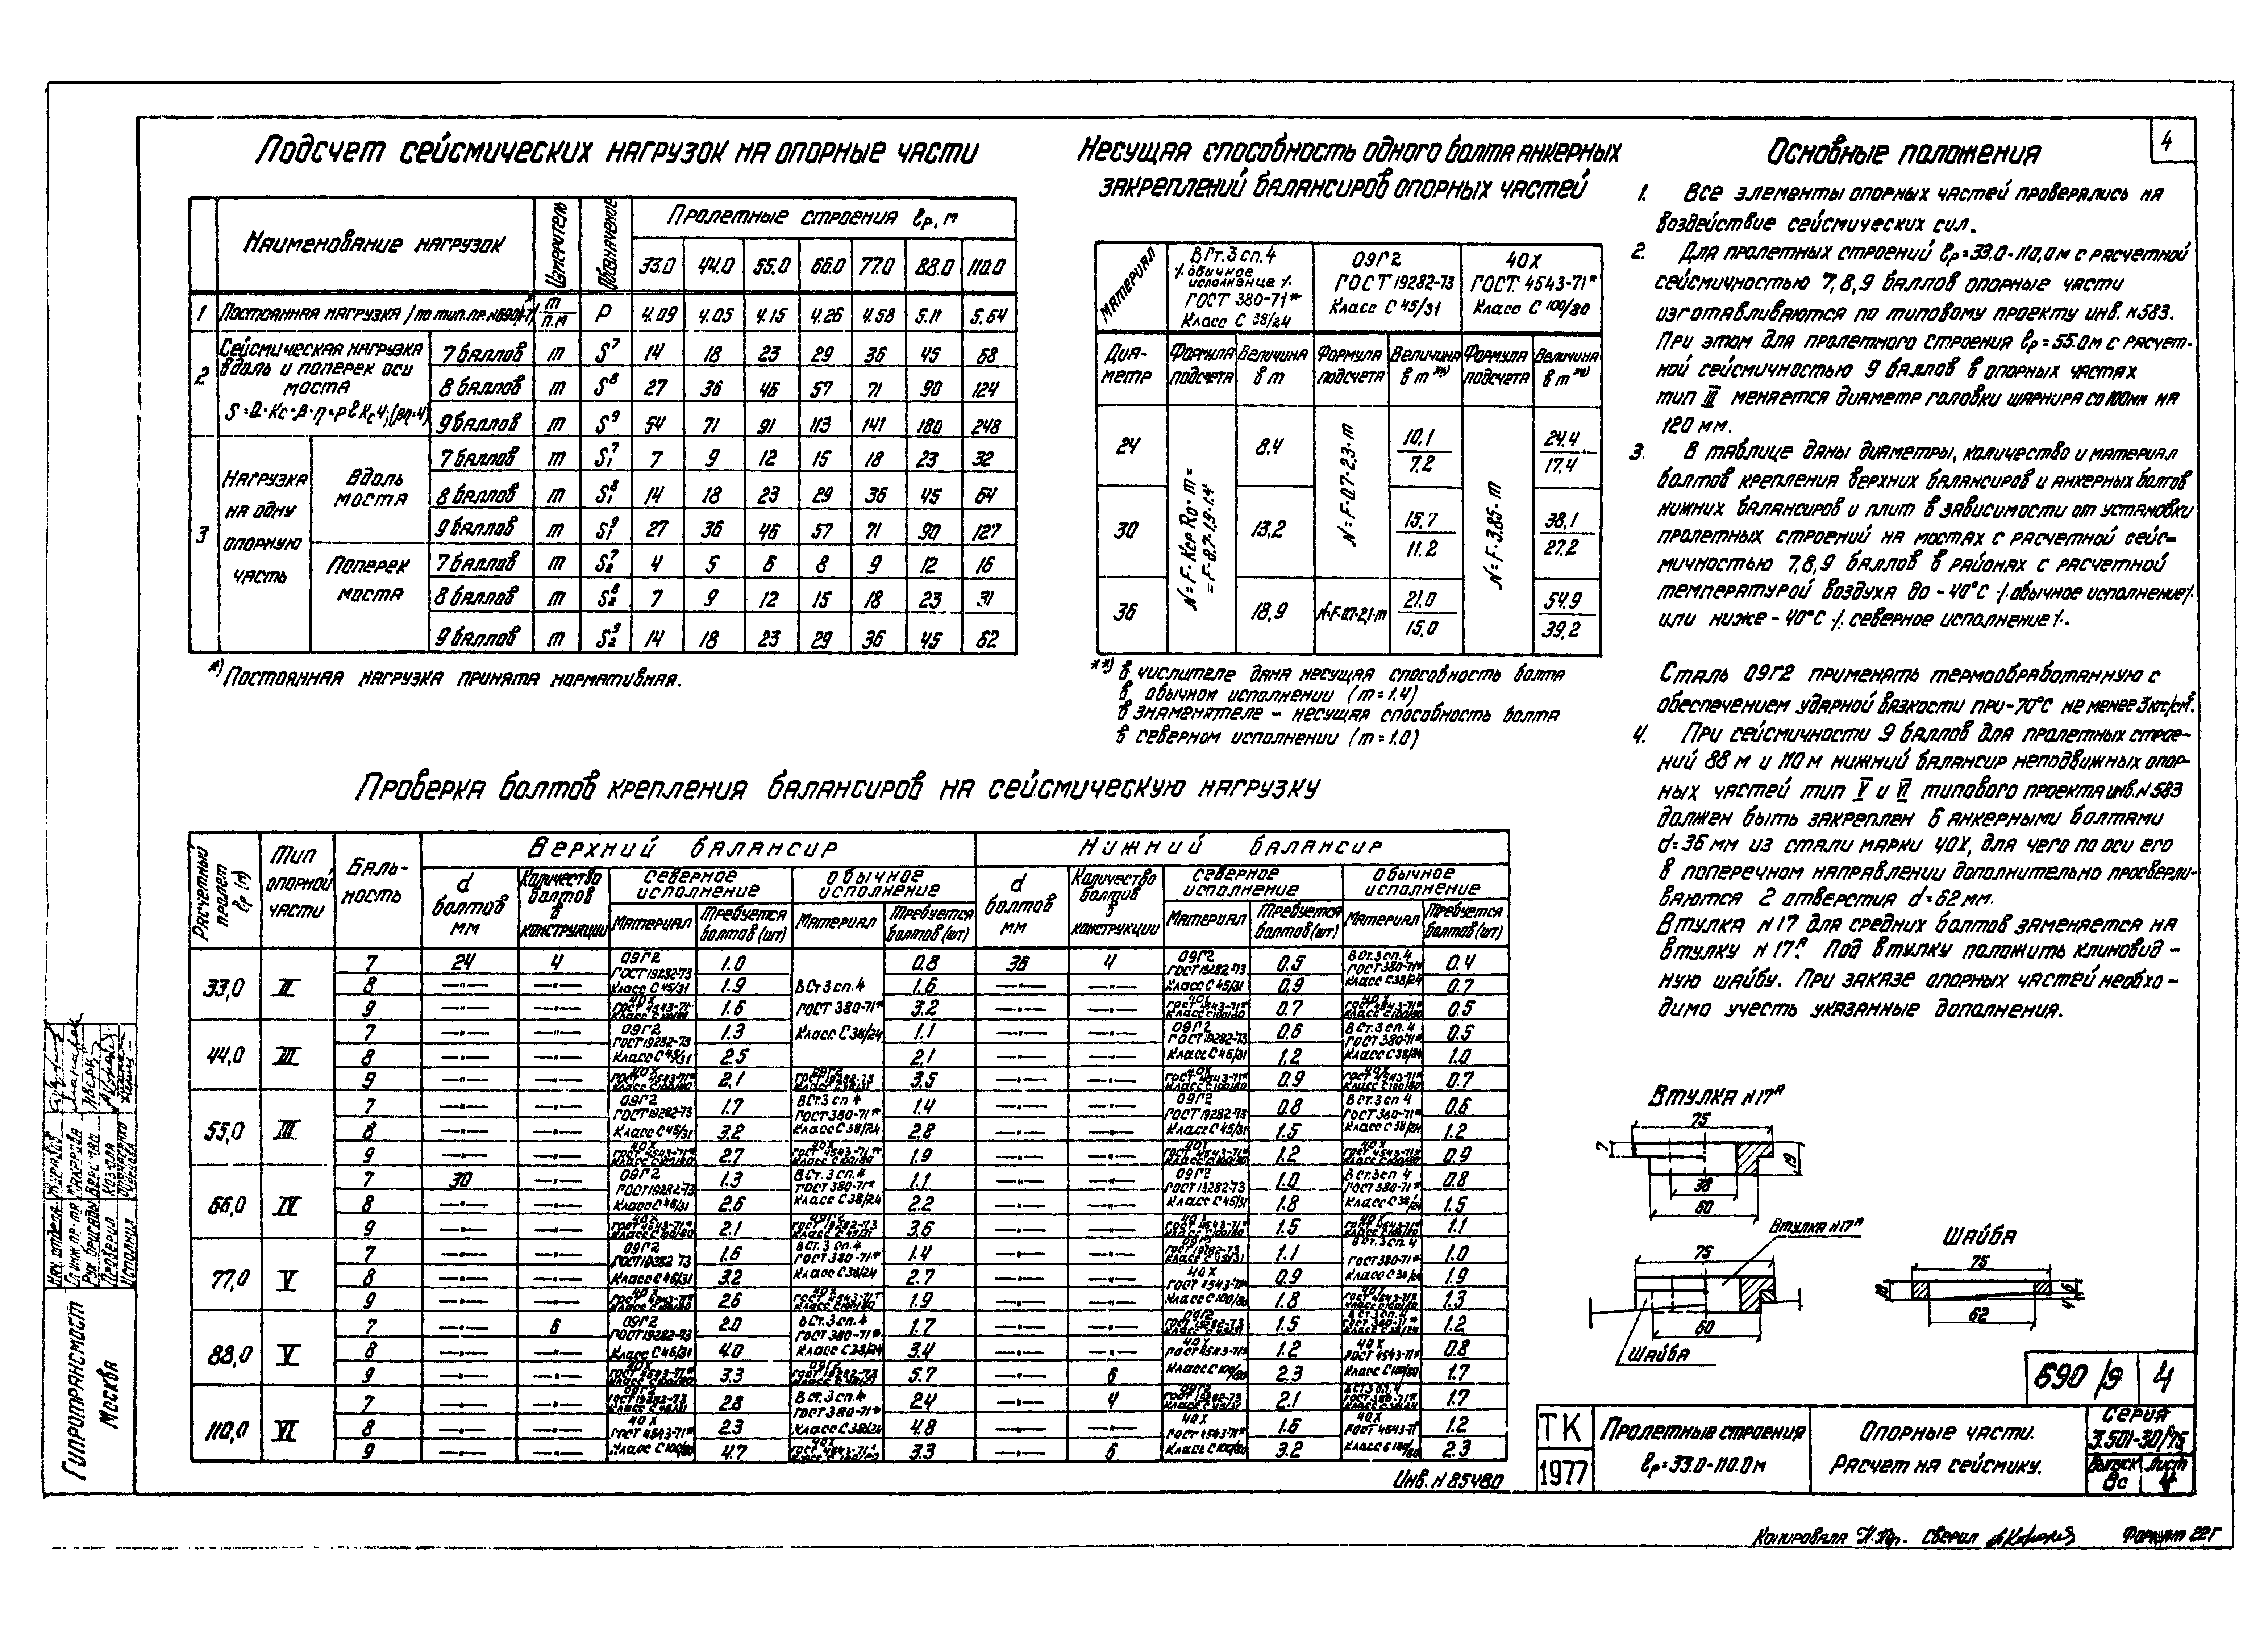 4
Подсчет сейсмических нагрузок на опорные части
Наименование нагрузок
Измеритель
Обозначение
Пролетные строения lр, м
33.0 44.0 55.0 66.0 77.0 88.0 110.0
1 Постоянная нагрузка /по тип. пр. т/п.м Р 4.09 4.05 4.15 4.26 4.58 5.11 5.64
2 Сейсмическая нагрузка вдоль и поперек оси моста
7 баллов т S⁷ 14 18 23 29 36 45 68
8 баллов т S⁸ 27 36 46 57 71 90 124
9 баллов т S⁹ 54 71 91 113 141 180 248
3 Нагрузка на одну опорную часть
Вдоль моста
7 баллов т S₁⁷ 7 9 12 15 18 23 32
8 баллов т S₁⁸ 14 18 23 29 36 45 64
9 баллов т S₁⁹ 27 36 46 57 71 90 127
Поперек моста
7 баллов т S₂⁷ 4 5 6 8 9 12 16
8 баллов т S₂⁸ 7 9 12 15 18 23 31
9 баллов т S₂⁹ 14 18 23 29 36 45 62
*) Постоянная нагрузка принята нормативная.
Несущая способность одного болта анкерных
закреплений балансиров опорных частей
Материал
ВСт.3сп.4
/. обычное
исполнение /.
ГОСТ 380-71*
Класс С 38/24
09Г2
ГОСТ 19282-73
Класс С 45/31
40Х
ГОСТ 4543-71*
Класс С 100/80
Диаметр
Формула подсчета
Величина в т
Формула подсчета
Величина в т **)
Формула подсчета
Величина в т **)
N = F·Kср Rо·m =
= F·0.7·1,9·1.4
N = F·0.7·2,3·m
N=F·0.7·2,1·m
N = F·3.85·m
24 8,4 10,1/7.2 24.4/17.4
30 13,2 15,7/11.2 38.1/27.2
36 18,9 21.0/15.0 54.9/39.2
**) в числителе дана несущая способность болта
в обычном исполнении (m=1.4)
в знаменателе - несущая способность болта
в северном исполнении (m=1.0)
Основные положения
1. Все элементы опорных частей проверялись на
воздействие сейсмических сил.
2. Для пролетных строений lр=33,0-110,0м с расчетной
сейсмичностью 7,8,9 баллов опорные части
изготавливаются по типовому проекту инв. N583.
При этом для пролетного строения lр=55.0м с расчет-
ной сейсмичностью 9 баллов в опорных частях
тип III меняется диаметр головки шарнира со 100мм на
120 мм.
3. В таблице даны диаметры, количество и материал
болтов крепления верхних балансиров и анкерных болтов
нижних балансиров и плит в зависимости от установки
пролетных строений на мостах с расчетной сейс-
мичностью 7,8,9 баллов в районах с расчетной
температурой воздуха до -40°С /.обычное исполнение/.
или ниже -40°С /. северное исполнение /.
Сталь 09Г2 применять термообработанную с
обеспечением ударной вязкости при -70°С не менее 3кгс/см².
4. При сейсмичности 9 баллов для пролетных строе-
ний 88 м и 110 м нижний балансир неподвижных опор-
ных частей тип V и VI типового проекта инв. N583
должен быть закреплен 6 анкерными болтами
d=36 мм из стали марки 40Х, для чего по оси его
в поперечном направлении дополнительно просверли-
ваются 2 отверстия d=62мм.
Втулка N17 для средних болтов заменяется на
втулку N17ᴬ. Под втулку положить клиновид-
ную шайбу. При заказе опорных частей необхо-
димо учесть указанные дополнения.
Проверка болтов крепления балансиров на сейсмическую нагрузку
Расчетный пролет lр (м)
Тип опорной части
Бальность
Верхний балансир
Нижний балансир
d болтов мм
Количество болтов в конструкции
северное исполнение
обычное исполнение
d болтов мм
Количество болтов в конструкции
северное исполнение
обычное исполнение
Материал Требуется болтов (шт) Материал Требуется болтов (шт)
Материал Требуется болтов (шт) Материал Требуется болтов (шт)
33,0 II
7 24 4 09Г2 ГОСТ 19282-73 Класс С 45/31 1.0 ВСт3сп.4 ГОСТ 380-71* Класс С 38/24 0.8 36 4 09Г2 ГОСТ 19282-73 Класс С 45/31 0.5 ВСт.3сп.4 ГОСТ 380-71* Класс С 38/24 0.4
8 —"— —"— 1.9 1.6 —"— —"— 0.9 0.7
9 —"— —"— 40Х ГОСТ 4543-71* 1.6 3.2 —"— —"— 40Х ГОСТ 4543-71* Класс С 100/80 0.7 40Х ГОСТ 4543-71* Класс С 100/80 0.5
44,0 III
7 —"— —"— 09Г2 ГОСТ 19282-73 Класс С 45/31 1.3 1.1 —"— —"— 09Г2 ГОСТ 19282-73 Класс С 45/31 0.6 ВСт.3сп.4 ГОСТ 380-71* Класс С 38/24 0.5
8 —"— —"— 2.5 2.1 —"— —"— 1.2 1.0
9 —"— —"— 40Х ГОСТ 4543-71* Класс С 100/80 2.1 09Г2 ГОСТ 19282-73 Класс С 45/31 3.5 —"— —"— 40Х ГОСТ 4543-71* Класс С 100/80 0.9 40Х ГОСТ 4543-71* Класс С 100/80 0.7
55,0 III
7 —"— —"— 09Г2 ГОСТ 19282-73 Класс С 45/31 1.7 ВСт.3сп 4 ГОСТ 380-71* Класс С 38/24 1.4 —"— —"— 09Г2 ГОСТ 19282-73 Класс С 45/31 0.8 ВСт.3сп 4 ГОСТ 380-71* Класс С 38/24 0.6
8 —"— —"— 3.2 2.8 —"— —"— 1.5 1.2
9 —"— —"— 40Х ГОСТ 4543-71* Класс С 100/80 2.7 40Х ГОСТ 4543-71* Класс С 100/80 1.9 —"— —"— 40Х ГОСТ 4543-71* Класс С 100/80 1.2 40Х ГОСТ 4543-71* Класс С 100/80 0.9
66,0 IV
7 30 —"— 09Г2 ГОСТ 19282-73 Класс С 45/31 1.3 ВСт.3сп.4 ГОСТ 380-71* Класс С 38/24 1.1 —"— —"— 09Г2 Класс С 45/31 1.0 ВСт3сп 4 ГОСТ 380-71* Класс С 38/24 0.8
8 —"— —"— 2.6 2.2 —"— —"— 1.8 1.5
9 —"— —"— 40Х ГОСТ 4543-71* Класс С 100/80 2.1 09Г2 ГОСТ 19282-73 Класс С 45/31 3.6 —"— —"— 40Х ГОСТ 4543-71* Класс С 100/80 1.5 40Х ГОСТ 4543-71* Класс С 100/80 1.1
77,0 V
7 —"— —"— 09Г2 ГОСТ 19282 73 Класс С 45/31 1.6 ВСт.3 сп.4 ГОСТ 380-71* Класс С 38/24 1.4 —"— —"— 09Г2 ГОСТ 19282-73 Класс С 45/31 1.1 ВСт.3 сп.4 ГОСТ 380-71* Класс С 38/24 1.0
8 —"— —"— 3.2 2.7 —"— —"— 40Х ГОСТ 4543-71* Класс С 100/80 0.9 1.9
9 —"— —"— 40Х ГОСТ 4543-71* Класс С 100/80 2.6 40Х ГОСТ 4543-71* Класс С 100/80 1.9 —"— —"— 1.8 1.3
88,0 V
7 —"— 6 09Г2 ГОСТ 19282-73 Класс С 45/31 2.0 ВСт.3сп.4 ГОСТ 380-71* Класс С 38/24 1.7 —"— —"— 09Г2 ГОСТ 19282-73 Класс С 45/31 1.5 ВСт.3сп.4 ГОСТ 380-71* Класс С 38/24 1.2
8 —"— —"— 4.0 3.4 —"— —"— 40Х ГОСТ 4543-71* Класс С 100/80 1.2 40Х ГОСТ 4543-71* Класс С 100/80 0.8
9 —"— —"— 40Х ГОСТ 4543-71* Класс С 100/80 3.3 09Г2 ГОСТ 19282-73 Класс С 45/31 5.7 —"— 6 2.3 1.7
110,0 VI
7 —"— —"— 09Г2 ГОСТ 19282-73 Класс С 45/31 2.8 ВСт.3сп.4 ГОСТ 380-71* Класс С 38/24 2.4 —"— 4 09Г2 ГОСТ 19282-73 Класс С 45/31 2.1 ВСт3сп.4 ГОСТ 380-71* Класс С 38/24 1.7
8 —"— —"— 40Х ГОСТ 4543-71* Класс С 100/80 2.3 4.8 —"— —"— 40Х ГОСТ 4543-71* Класс С 100/80 1.6 40Х ГОСТ 4543-71* Класс С 100/80 1.2
9 —"— —"— 4.7 40Х ГОСТ 4543-71* Класс С 100/80 3.3 —"— 6 3.2 2.3
Инв. N 85480
Втулка N17ᴬ
75
7
19
38
60
Втулка N17ᴬ
75
60
Шайба
Шайба
75
10
6
4
62
690/9 4
ТК
1977
Пролетные строения
lр=33.0-110.0м
Опорные части.
Расчет на сейсмику.
Серия
3.501-30/75
Выпуск Лист
9с 4
Гипротрансмост
Москва
Нач. отдела
Гл. инж. пр-та
Рук. бригады
Проверил
Исполнил
Копировала
Сверил
Формат 22Г